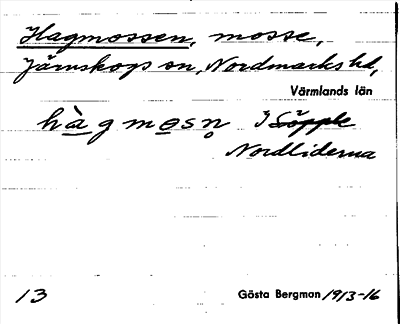 Hagmossen, mosse,
Järnskogs sn, Nordmarks hd,
Värmlands län
hàgmesn̥ I Söpple
Nordliderna
13 Gösta Bergman 1913-16